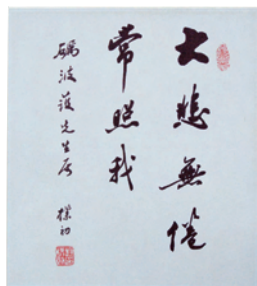 大悲無倦
常照我
礪波護先生屬
樸初